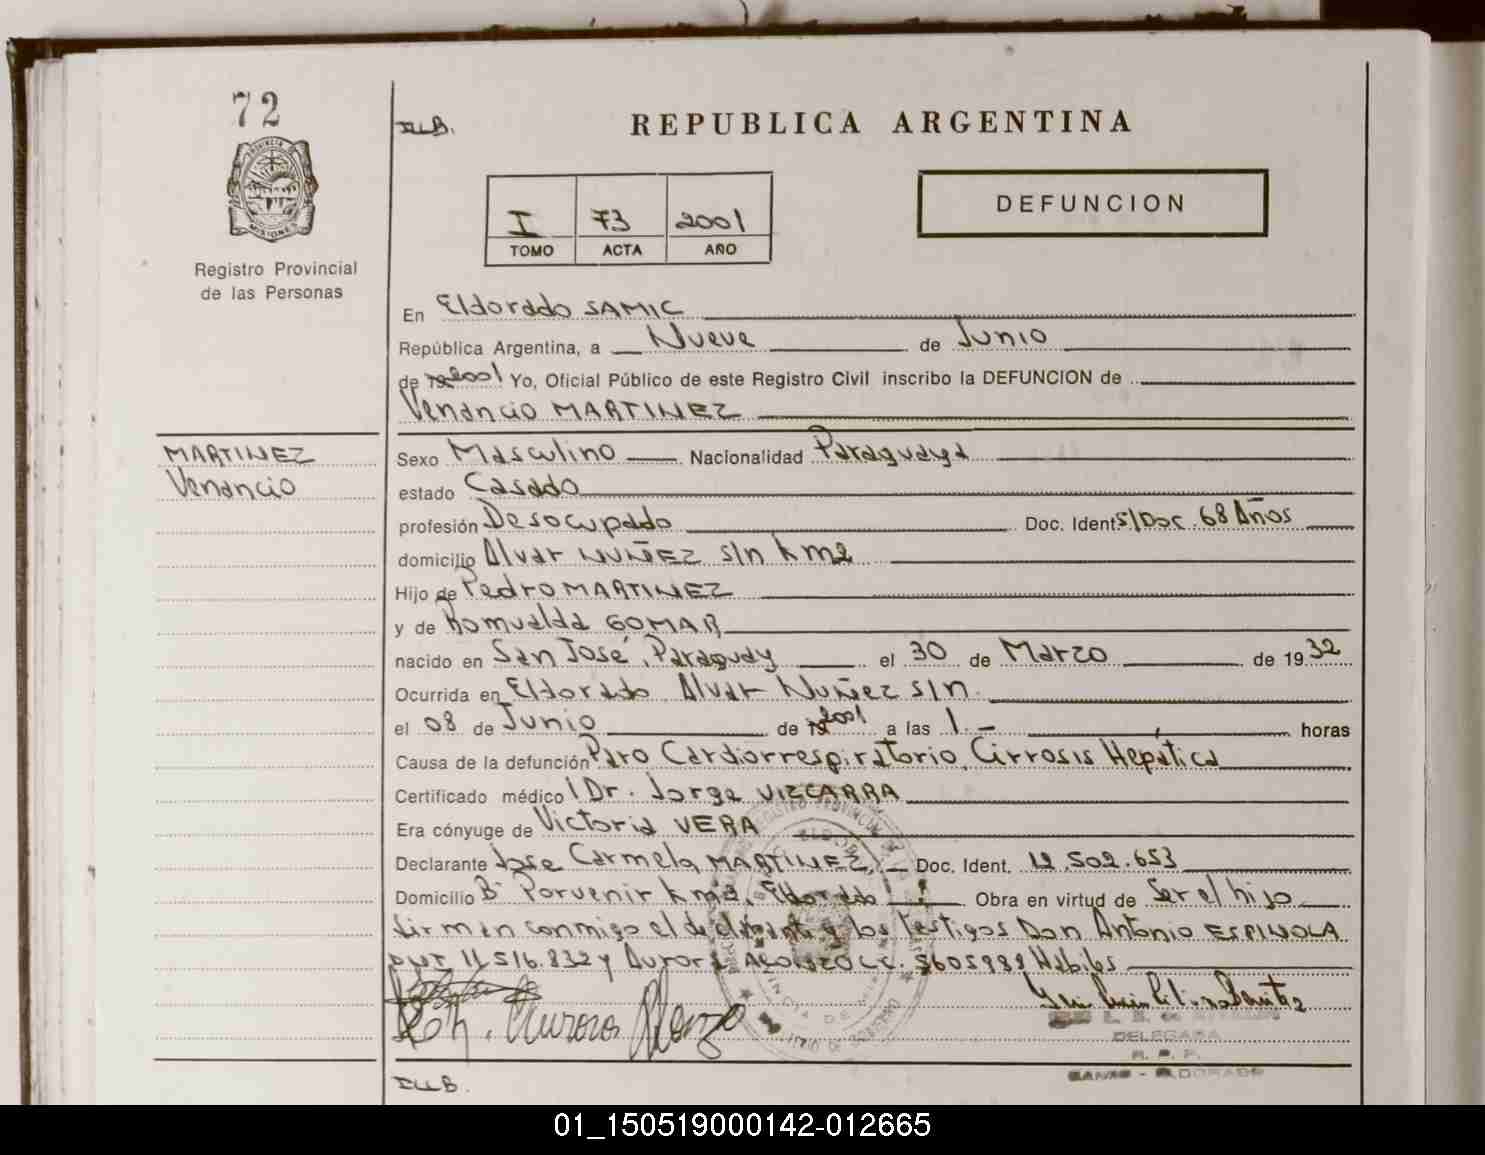 72
ILB.
REPUBLICA ARGENTINA
PROVINCIA DE
MISIONES
Registro Provincial
de las Personas
I 73 2001
TOMO ACTA AÑO
DEFUNCION
En Eldorado SAMIC
República Argentina, a Nueve de Junio
de 2001 Yo, Oficial Público de este Registro Civil inscribo la DEFUNCION de
Venancio MARTINEZ
MARTINEZ
Venancio
Sexo Masculino Nacionalidad Paraguaya
estado Casado
profesión Desocupado Doc. Ident S/Doc. 68 Años
domicilio Alvar NUÑEZ s/n km2
Hijo de Pedro MARTINEZ
y de Romualda GOMAR
nacido en San José, Paraguay el 30 de Marzo de 1932
Ocurrida en Eldorado Alvar Nuñez s/n.
el 08 de Junio de 2001 a las 1.- horas
Causa de la defunción Paro Cardiorrespiratorio, Cirrosis Hepática
Certificado médico Dr. Jorge VIZCARRA
Era cónyuge de Victoria VERA
Declarante Jose Carmelo MARTINEZ Doc. Ident. 12.502.653
Domicilio Bº Porvenir km2, Eldorado Obra en virtud de Ser el hijo
firman conmigo el declarante y los testigos Don Antonio ESPINOLA
11.516.832 y Aurora ALONZO L.C. 5605989 Hábiles
Aurora Alonzo
DELEGADA
R. P. P.
SAMIC - ELDORADO
ILB.
01_150519000142-012665